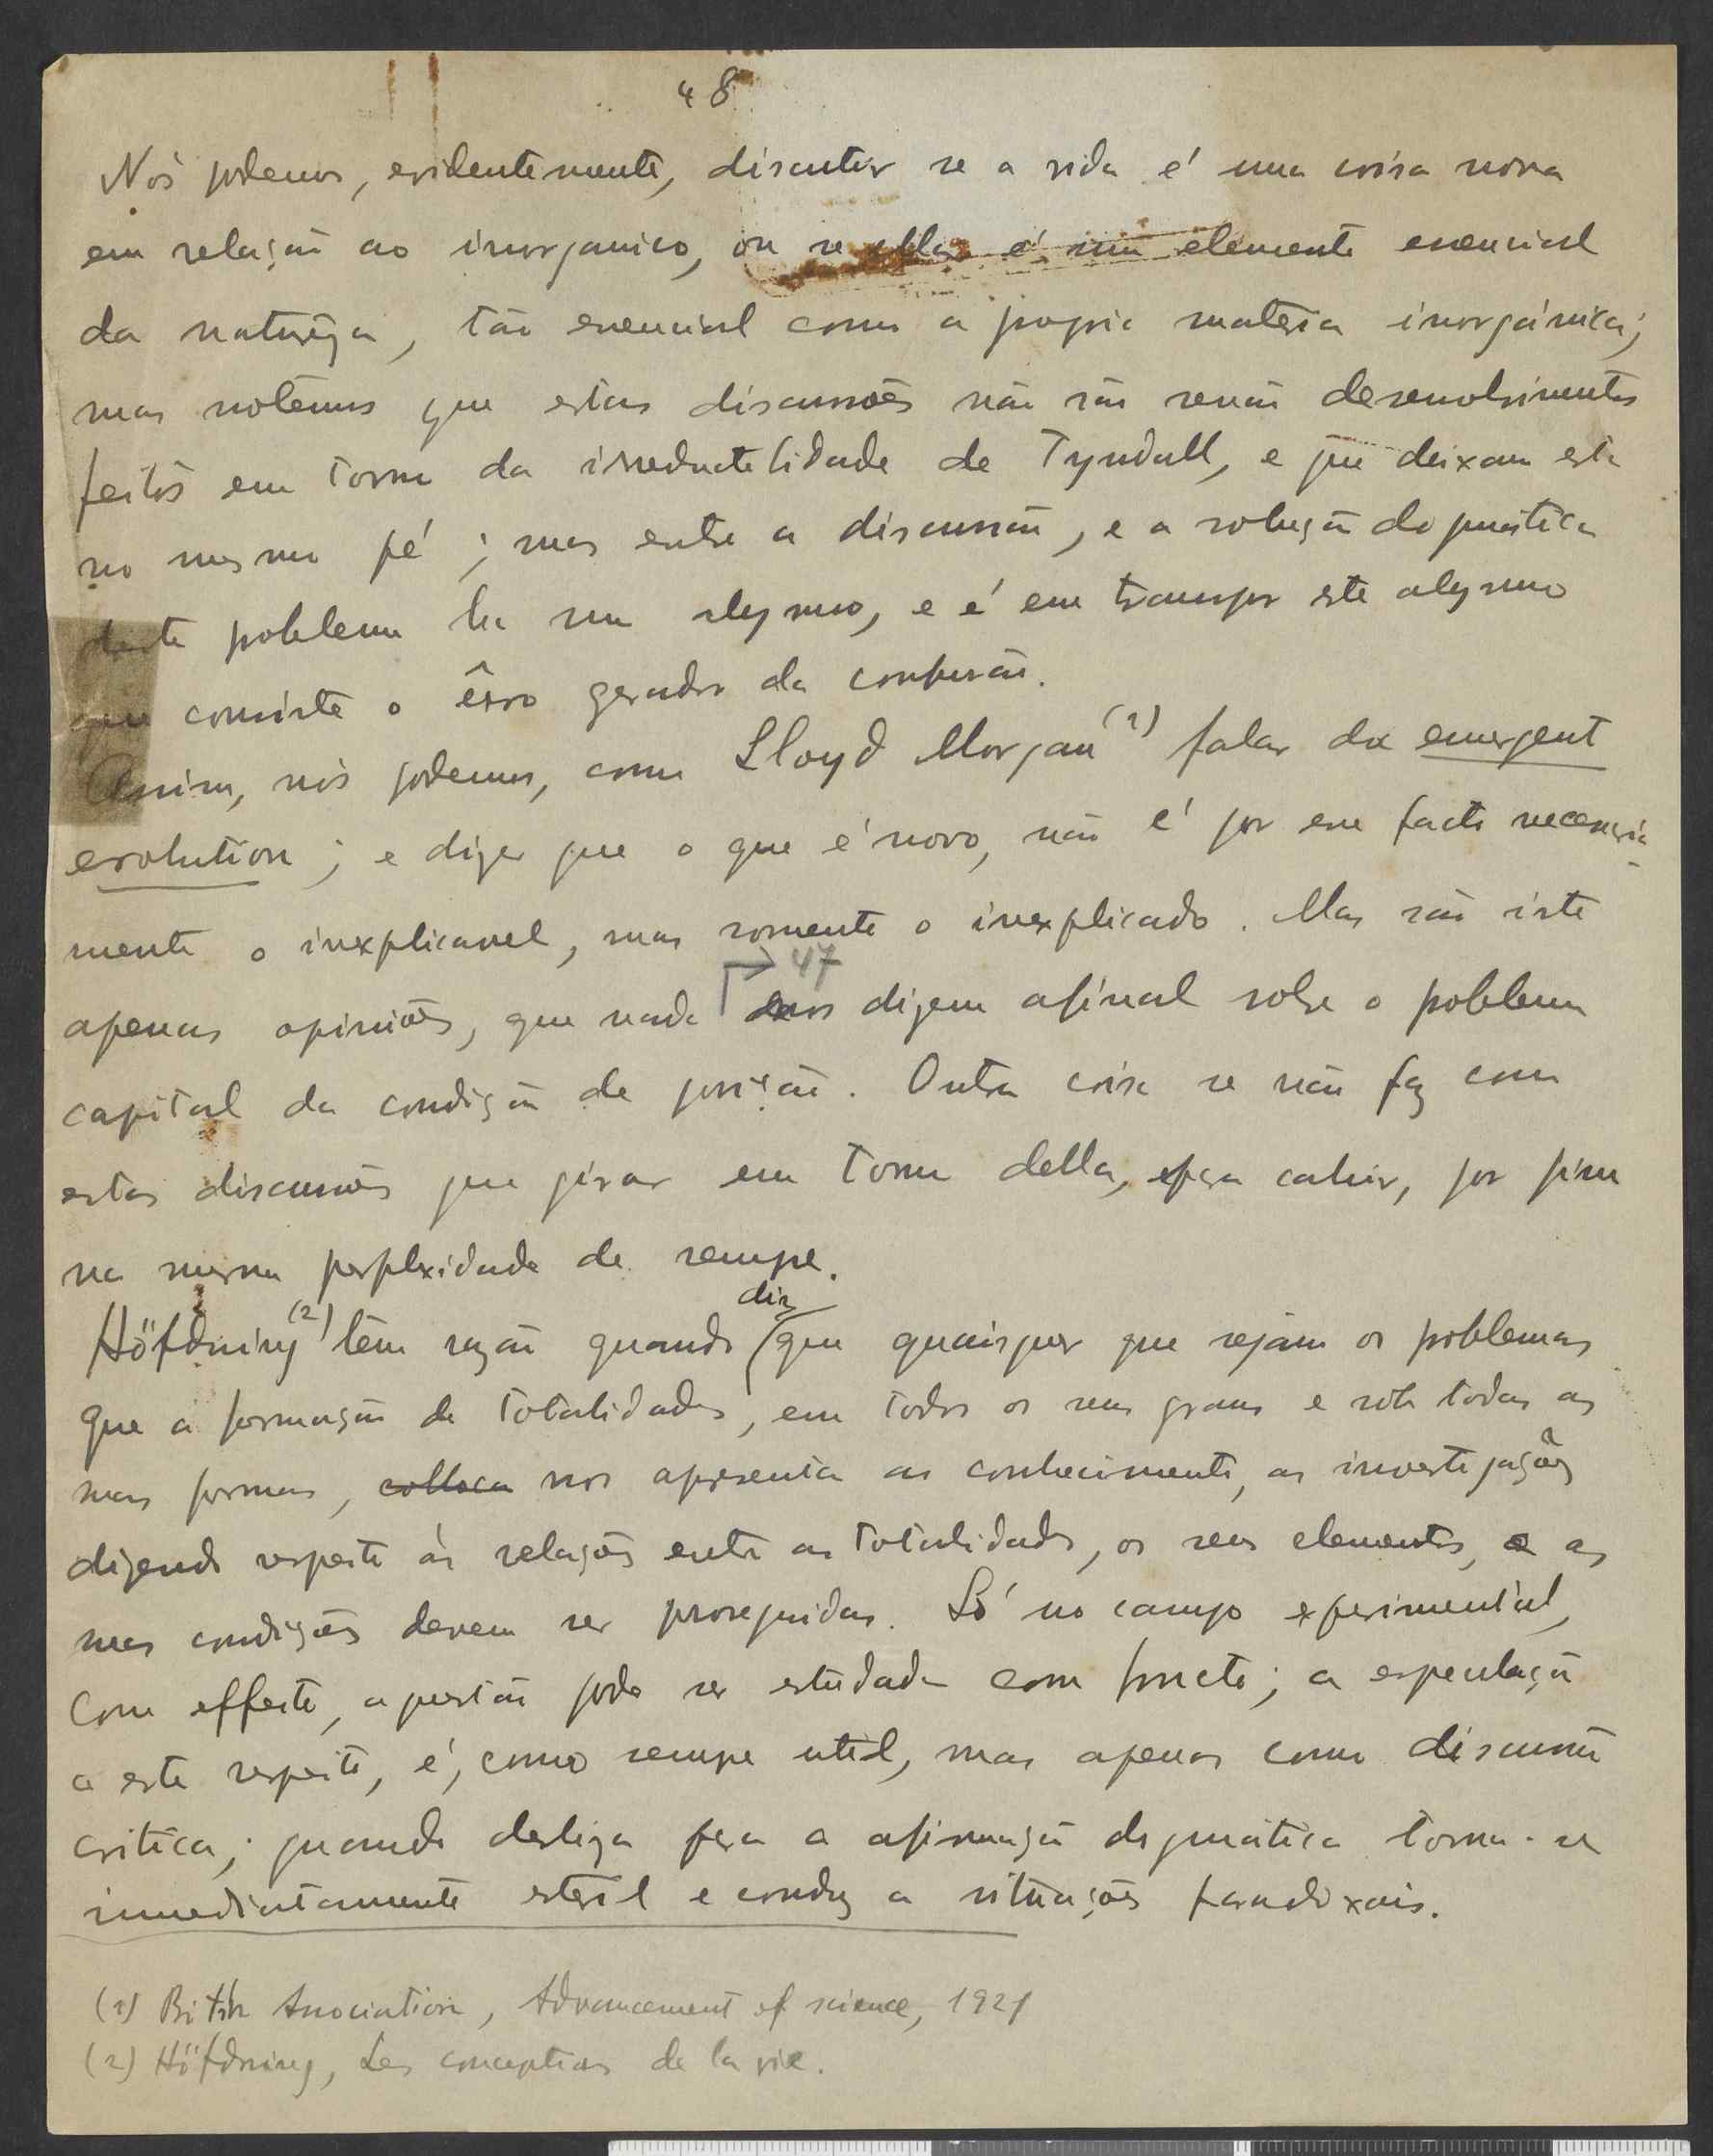 48
Nós podemos, evidentemente, discutir se a vida é uma coisa nova
em relação ao inorganico, ou se ella é um elemento essencial
da naturêza, tão essencial como a propria materia inorgánica;
mas notêmos que estas discussões não são senão desenvolvimentos
feitos em torno da irreductibilidade de Tyndall, e que deixam esta
no mesmo pé; mas entre a discussão, e a solução dogmática
deste problema ha um abysmo, e é em transpor este abysmo
que consiste o êrro gerador da confusão.
Assim, nós podemos, como Lloyd Morgan (1) falar da emergent
evolution; e dizer que o que é novo, não é por esse facto necessária-
mente o inexplicavel, mas somente o inexplicado. Mas são isto
47
apenas opiniões, que nada nos dizem afinal sobre o problema
capital da condição de posição. Outra coisa se não faz com
estas discussões que girar em torno della, e para cahir, por fim
na mesma perplexidade de sempre.
diz
Höfdning (2) têm razão quando que quaisquer que sejam os problemas
que a formação de totalidades, em todos os seus graus e sob todas as
suas formas, colloca nos apresenta ao conhecimento, as investigações
dizendo respeito ás relações entre as totalidades, os seus elementos, e as
suas condições devem ser proseguidas. Só no campo experimental,
com effeito, a questão pode ser estudada com fructo; a especulação
a este respeito, é, como sempre util, mas apenas como discussão
critica; quando desliza para a afirmação dogmática torna-se
immediatamente esteril e conduz a situações paradoxais.
(1) British Association, Advancement of science, 1921
(2) Höfdning, Les conceptions de la vie.